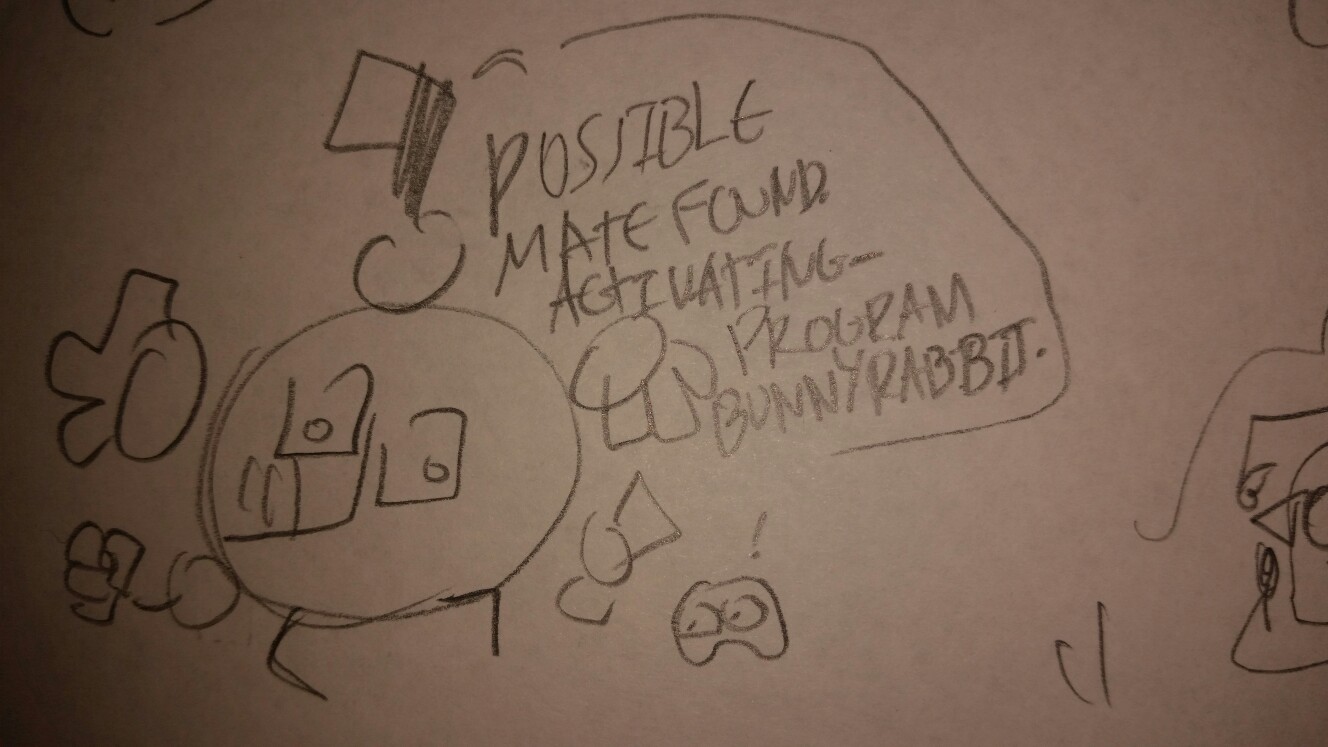 POSSIBLE
MATE FOUND.
ACTIVATING-
PROGRAM
BUNNYRABBIT.
!